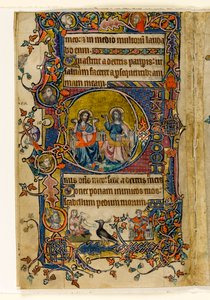 meo: & in medio multorum lauda
bo eum
astitit a dextris paupis: ut
saluam faceret a psequentib;
mam meam
sede a dextris meis
Donec ponam inimicos tuos
scabellum pedum tuorum